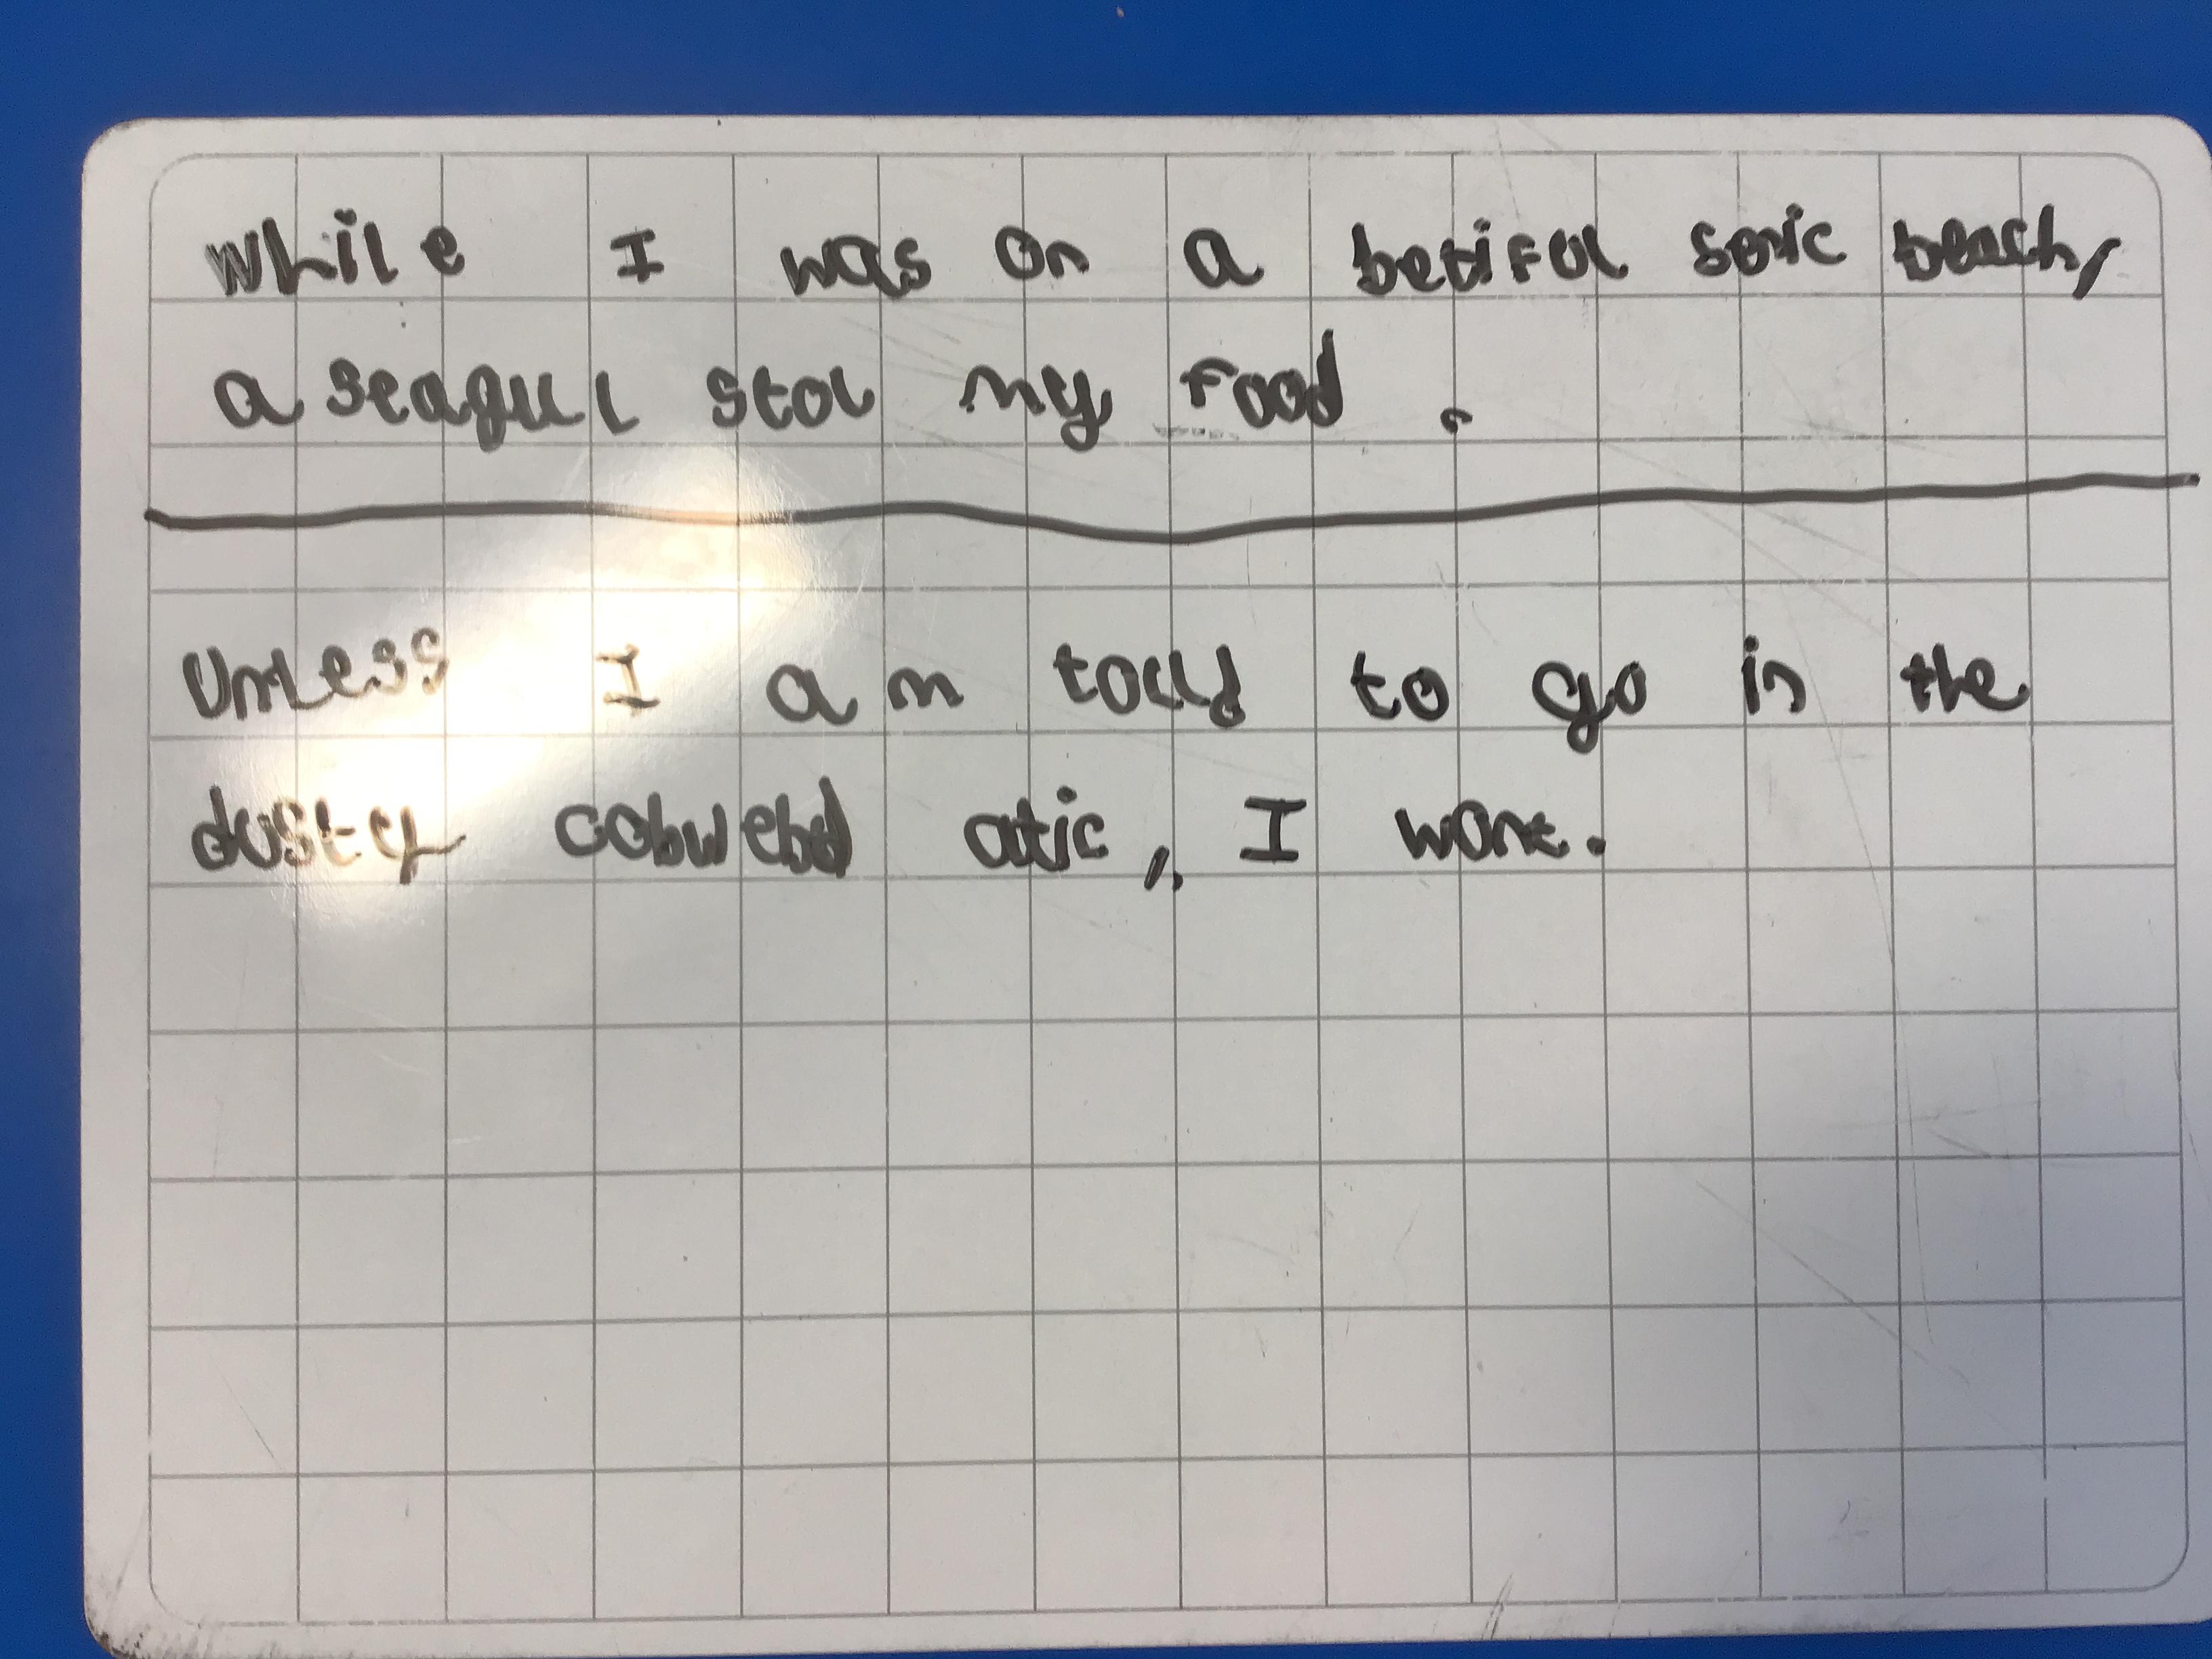 while I was on a betiful senic beach,
a seagul stol my food.
Unless I am tould to go in the
dustey cobwebd atic, I wont.